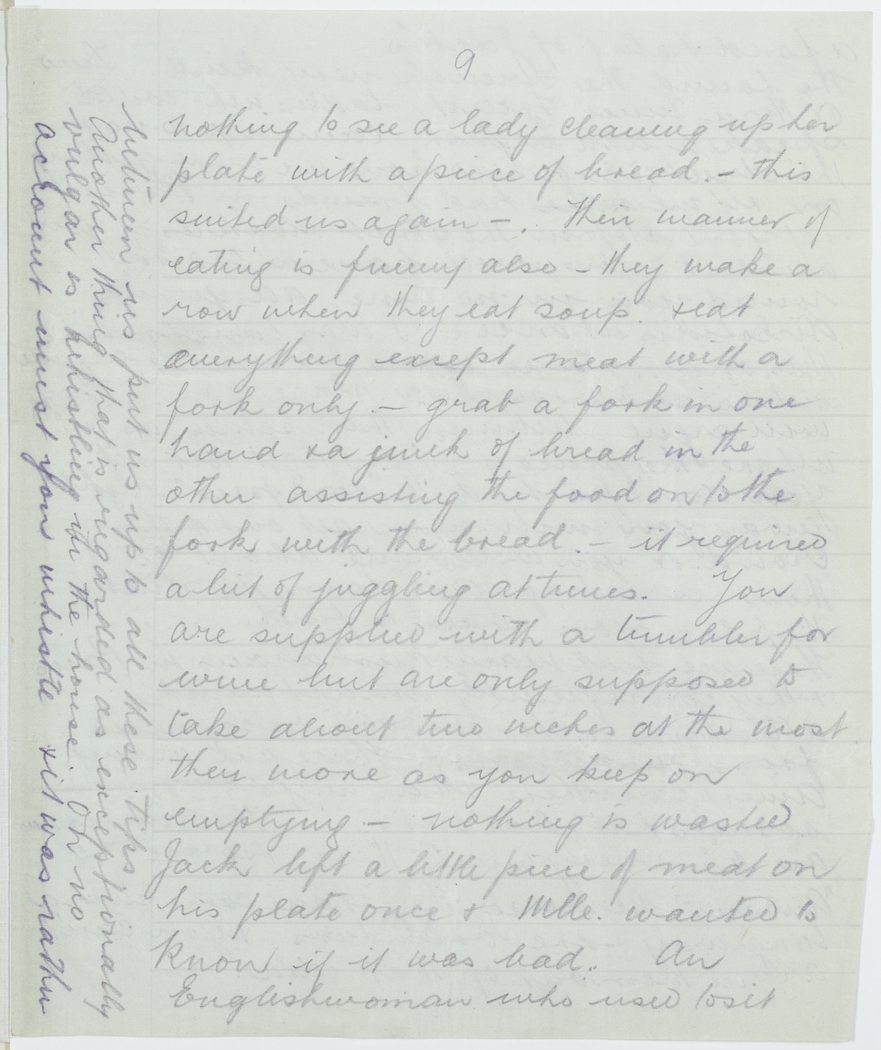 9
nothing to see a lady cleaning up her
plate with a piece of bread. - this
suited us again -. Their manner of
eating is funny also - they make a
row when they eat soup. & eat
everything except meat with a
fork only. - grab a fork in one
hand & a junk of bread in the
other assisting the food on to the
fork with the bread. - it required
a bit of juggling at times. You
are supplied with a tumbler for
wine but are only supposed to
take about two inches at the most.
then more as you keep on
emptying - nothing is wasted
Jack left a little piece of meat on
his plate once & Mlle. wanted to
know if it was bad. An
Englishwoman who used to sit
between us put us up to all these tips.
Another thing that is regarded as exceptionally
vulgar is whistling in the house. On no
account must you whistle & it was rather